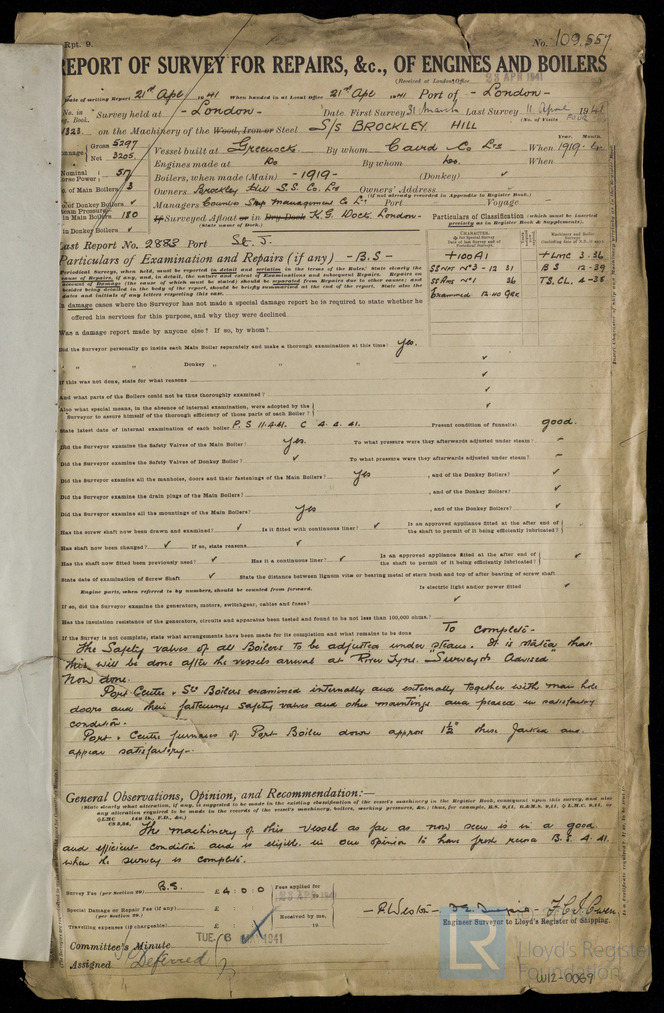 Rpt. 9.
No. 109,557
REPORT OF SURVEY FOR REPAIRS, &c., OF ENGINES AND BOILERS
(Received at London Office 23 APR 1941
Date of writing Report 21st Apl 1941 When handed in at Local Office 21st Apl 1941 Port of - London -
No. in Reg. Book. Survey held at - London - Date, First Survey 31 March Last Survey 11 April 1941
(No. of Visits FOUR
on the Machinery of the Wood, Iron or Steel S/S BROCKLEY HILL
Gross 5297
Net 3205
Vessel built at Greenock By whom Caird Co Ltd When 1919
Year. Month.
Engines made at Do By whom When
Boilers, when made (Main) - 1919 - (Donkey) ✓
No. of Main Boilers 3
Owners Brockley Hill S.S. Co. Ltd Owners' Address
(if not already recorded in Appendix to Register Book.)
Managers Counties Ship Management Co Lt. Port Voyage -
Steam Pressure in Main Boilers 180
If Surveyed Afloat or in Dry Dock K.G. Dock. London.
(State name of Dock.)
Particulars of Classification (which must be inserted precisely as in Register Book & Supplements).
Last Report No. 2883 Port St. J.
Particulars of Examination and Repairs (if any) - B.S -
+100A1 +LMC 3.36
SS No 3 - 12 31 BS 12.39
36 T.S. CL. 4-38
Examined 12.40
In damage cases where the Surveyor has not made a special damage report he is required to state whether he
offered his services for this purpose, and why they were declined
Was a damage report made by anyone else? If so, by whom?
Did the Surveyor personally go inside each Main Boiler separately and make a thorough examination at this time? yes.
" " Donkey " " "
If this was not done, state for what reasons
And what parts of the Boilers could not be thus thoroughly examined?
Also what special means, in the absence of internal examination, were adopted by the Surveyor to assure himself of the thorough efficiency of those parts of each Boiler?
State latest date of internal examination of each boiler P. S 11.4.41. C 4.4.41. Present condition of funnel(s) good.
Did the Surveyor examine the Safety Valves of the Main Boiler? yes. To what pressure were they afterwards adjusted under steam?
Did the Surveyor examine the Safety Valves of Donkey Boiler? ✓ To what pressure were they afterwards adjusted under steam?
Did the Surveyor examine all the manholes, doors and their fastenings of the Main Boilers? yes , and of the Donkey Boilers?
Did the Surveyor examine the drain plugs of the Main Boilers? , and of the Donkey Boilers?
Did the Surveyor examine all the mountings of the Main Boilers? yes , and of the Donkey Boilers?
Has the screw shaft now been drawn and examined? ✓ Is it fitted with continuous liner? ✓ Is an approved appliance fitted at the after end of the shaft to permit of it being efficiently lubricated?
Has shaft now been changed? ✓ If so, state reasons ✓
Has the shaft now fitted been previously used? ✓ Has it a continuous liner? ✓ Is an approved appliance fitted at the after end of the shaft to permit of it being efficiently lubricated? ✓
State date of examination of Screw Shaft ✓ State the distance between lignum vitæ or bearing metal of stern bush and top of after bearing of screw shaft
Engine parts, when referred to by numbers, should be counted from forward. Is electric light and/or power fitted ✓
If so, did the Surveyor examine the generators, motors, switchgear, cables and fuses? ✓
Has the insulation resistance of the generators, circuits and apparatus been tested and found to be not less than 100,000 ohms?
If the Survey is not complete, state what arrangements have been made for its completion and what remains to be done To complete -
The Safety valves of all Boilers to be adjusted under steam. It is stated that
this will be done after the vessels arrival at River Tyne. "Surveyors Advised"
Now done.
Port Centre & St Boilers examined internally and externally together with man hole
doors and their fastenings safety valves and other mountings and placed in satisfactory
condition.
Port & Centre furnaces of Port Boiler down approx 1½" these Jacked and
appear satisfactory -
General Observations, Opinion, and Recommendation:—
The machinery of this vessel as far as now seen is in a good
and efficient condition and is eligible in our opinion to have fresh record B.S 4.41.
when the survey is complete.
Survey Fee (per Section 29) B.S. £ 4 : 0 : 0 Fees applied for 23 APR 1941
Special Damage or Repair Fee (if any) £
(per Section 29.)
Received by me,
Travelling expenses (if chargeable) £
- R Weston -
Engineer Surveyor to Lloyd's Register of Shipping.
Committee's Minute TUE 6 1941
Assigned Deferred
LR
Lloyd's Register
Foundation
W12-0069